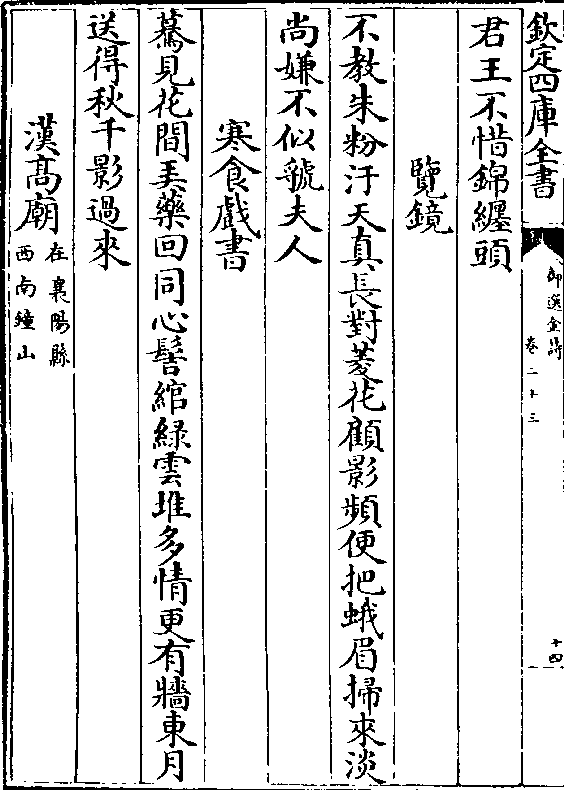 欽定四庫全書
御選金詩
卷二十三
十四
君王不惜錦纏頭
覽鏡
不教朱粉汙天真長對菱花顧影頻便把蛾眉掃來淡
尚嫌不似虢夫人
寒食戲書
驀見花間美藥回同心髻綰綠雲堆多情更有牆東月
送得秋千影過來
漢髙廟在襄陽縣
西南鐘山